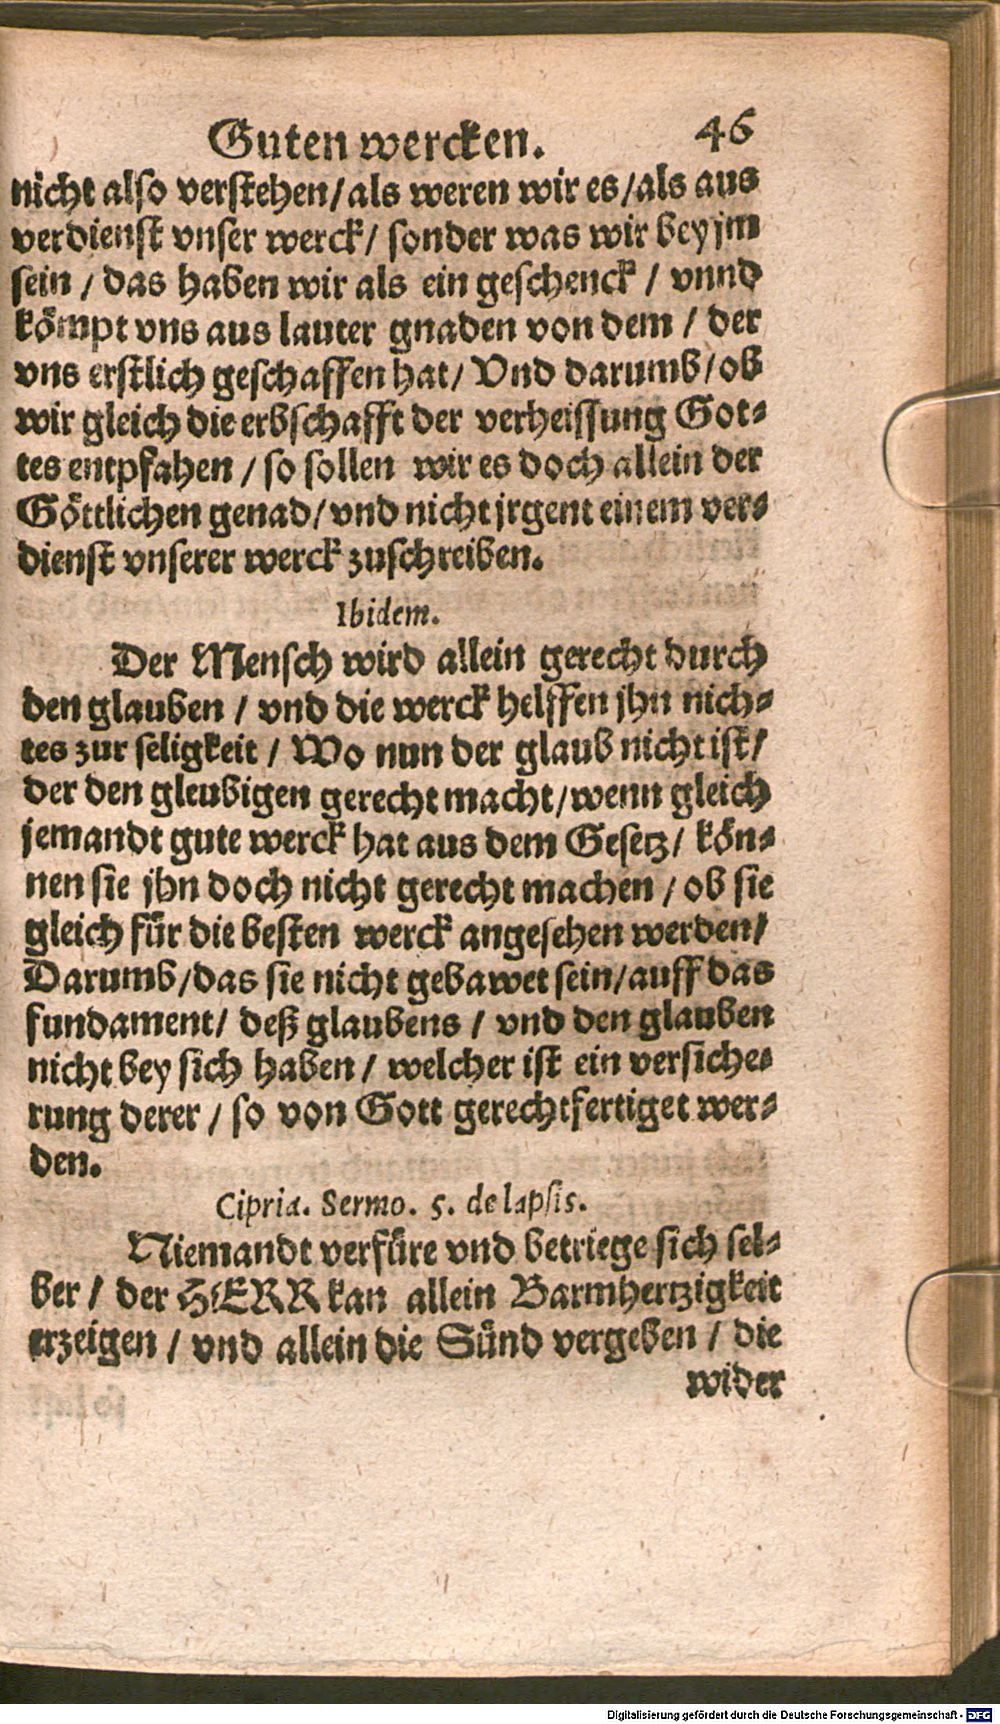 Guten wercken. 46
nicht also verstehen/als weren wir es/als aus
verdienst vnser werck/ sonder was wir bey jm
sein / das haben wir als ein geschenck / vnnd
kömpt vns aus lauter gnaden von dem / der
vns erstlich geschaffen hat/ Vnd darumb/ob
wir gleich die erbschafft der verheissung Got-
tes entpfahen / so sollen wir es doch allein der
Göttlichen genad/vnd nicht jrgent einem ver-
dienst vnserer werck zuschreiben.
Ibidem.
Der Mensch wird allein gerecht durch
den glauben / vnd die werck helffen jhn nich-
tes zur seligkeit / Wo nun der glaub nicht ist/
der den gleubigen gerecht macht/wenn gleich
jemandt gute werck hat aus dem Gesetz/ kön-
nen sie jhn doch nicht gerecht machen / ob sie
gleich für die besten werck angesehen werden/
Darumb/das sie nicht gebawet sein/auff das
fundament/ deß glaubens / vnd den glauben
nicht bey sich haben / welcher ist ein versiche-
rung derer / so von Gott gerechtfertiget wer-
den.
Cipria. Sermo. 5. de lapsis.
Niemandt verfüre vnd betriege sich sel-
ber / der HERR kan allein Barmhertzigkeit
erzeigen / vnd allein die Sünd vergeben / die
wider
Digitalisierung gefördert durch die Deutsche Forschungsgemeinschaft - DFG